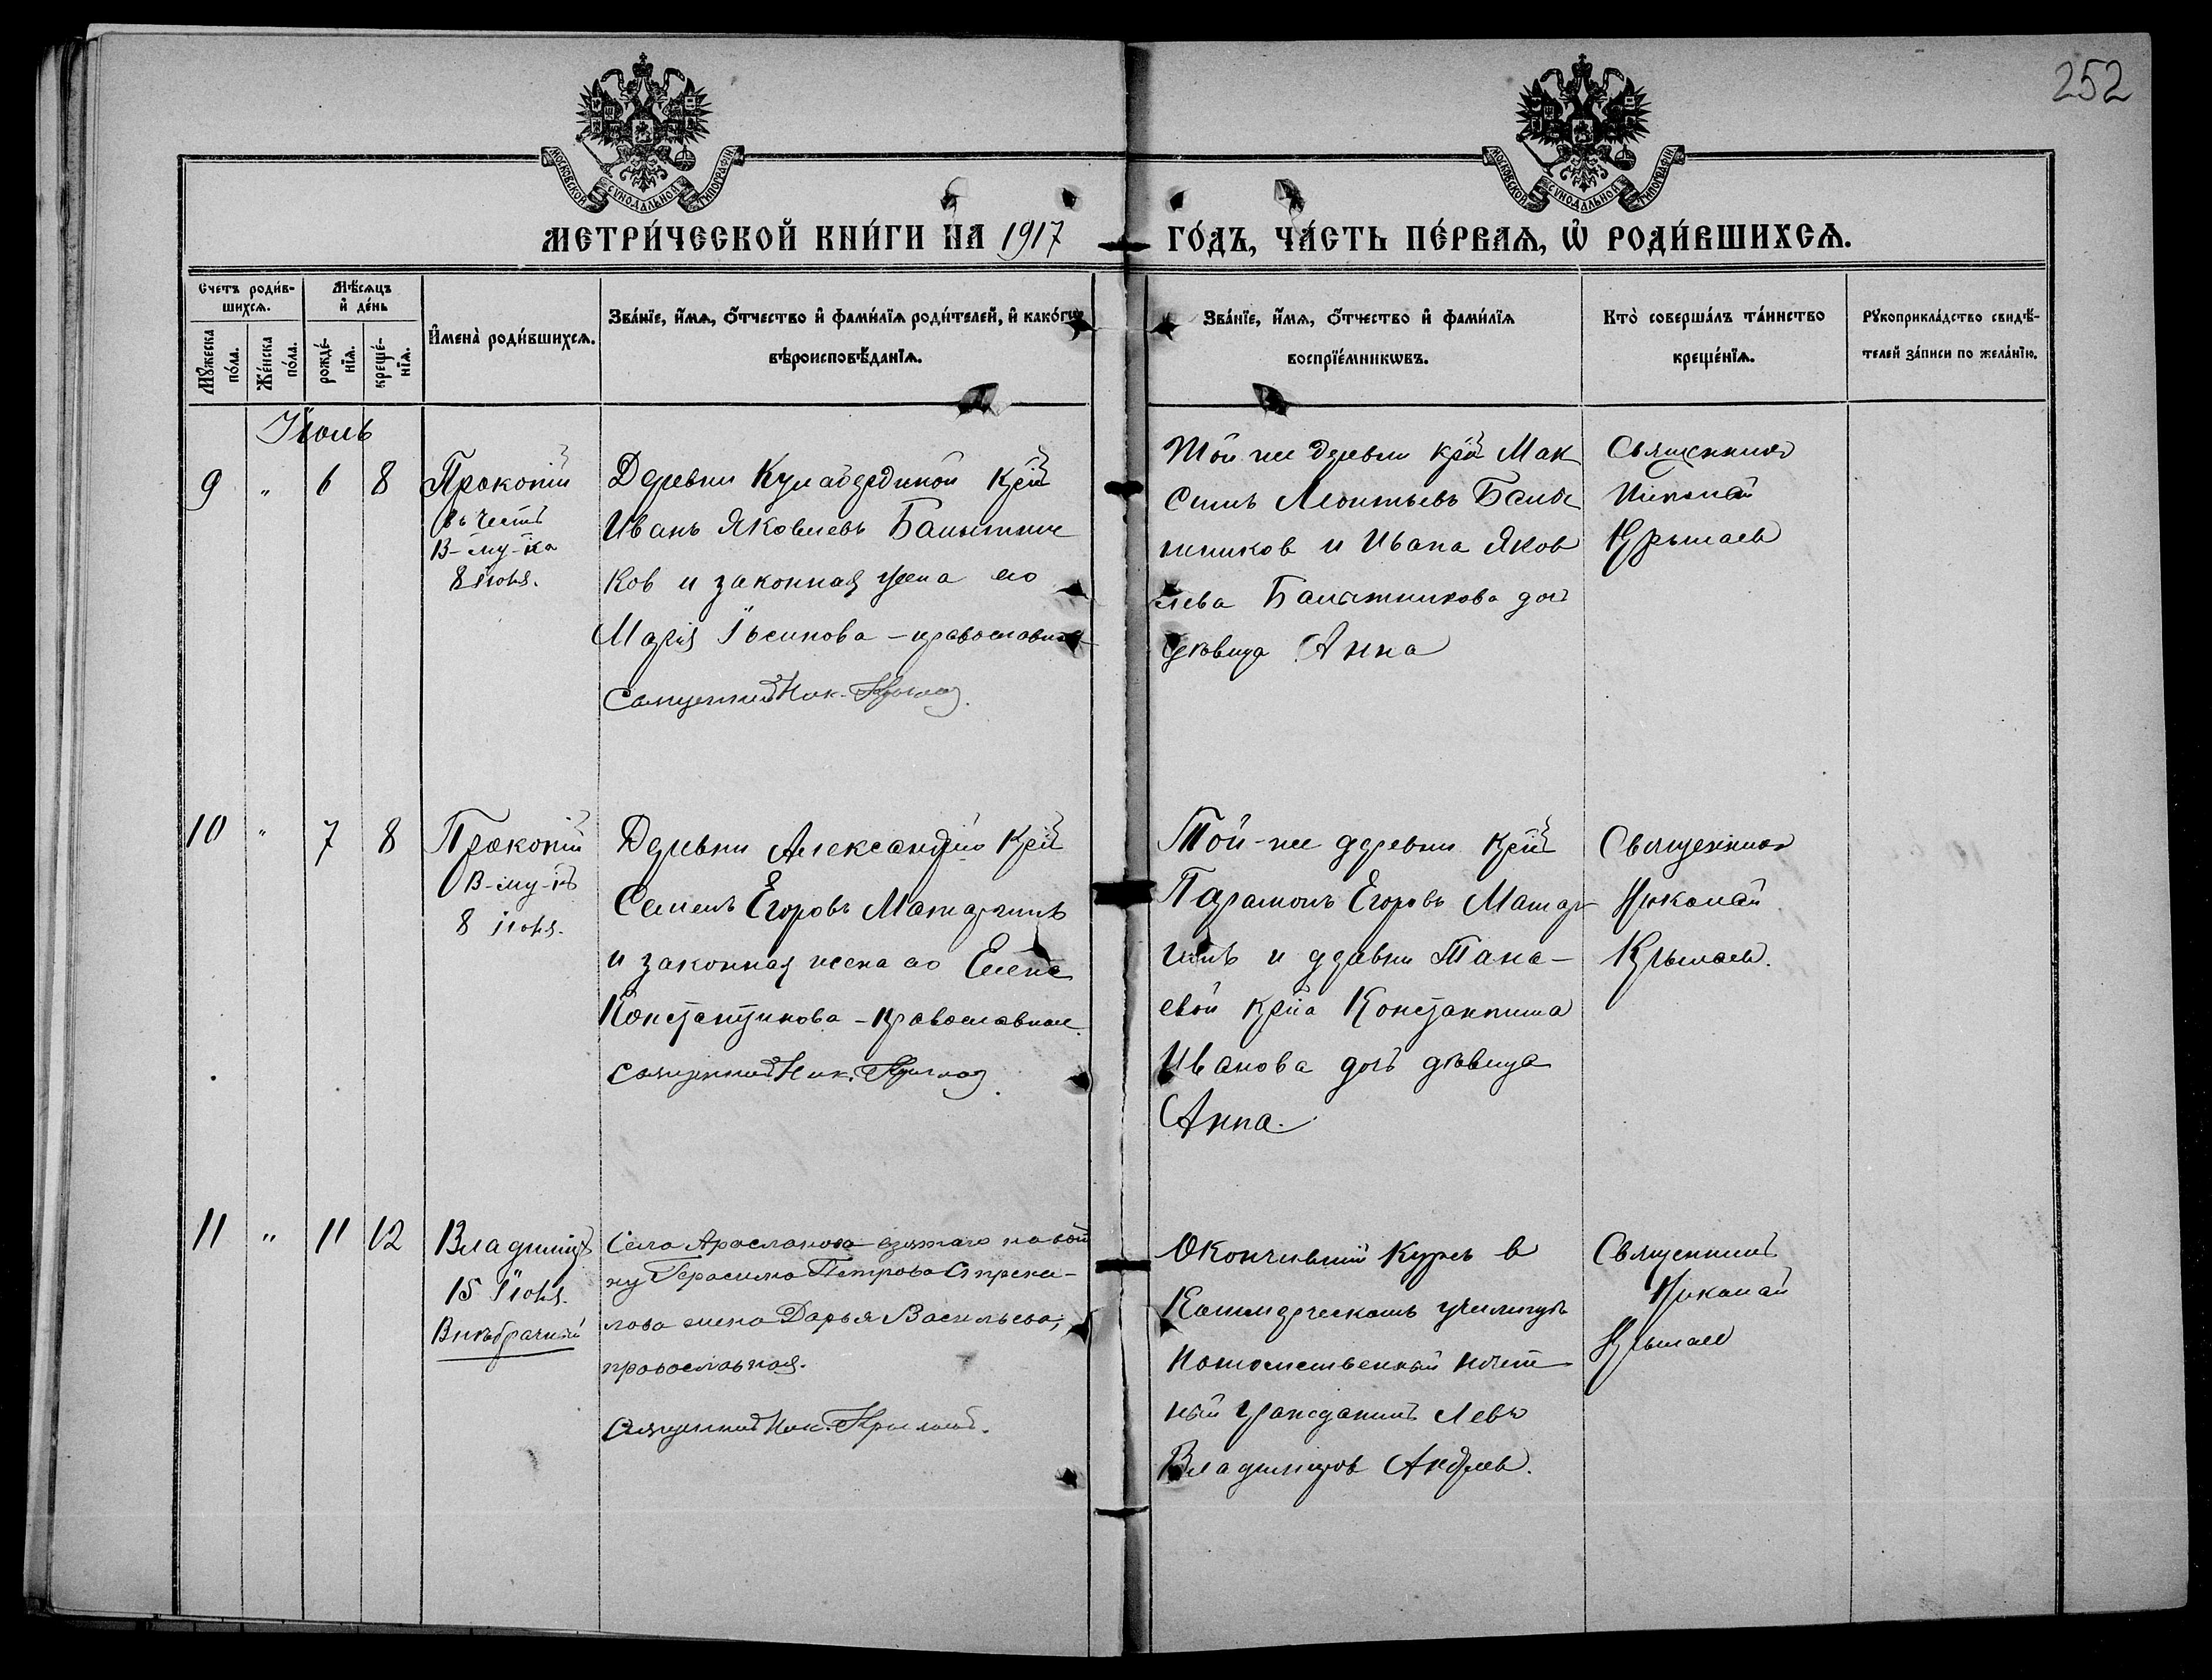 252
МОСКОВСКОЙ СѴНОДАЛЬНОЙ ТИПОГРАФІИ
МОСКОВСКОЙ СѴНОДАЛЬНОЙ ТИПОГРАФІИ
МЕТРИ́ЧЕСКОЙ КНИ́ГИ НА 1917 ГО́ДЪ, ЧА́СТЬ ПЕ́РВАѦ, Ѡ҆ РОДИ́ВШИХСѦ.
Счетъ роди́в-
шихсѧ.
Мѣ́сѧцъ
и҆ де́нь
Мꙋ́жеска
по́ла.
Же́нска
по́ла.
рожде́-
нїѧ.
креще́-
нїѧ.
И҆мена̀ роди́вшихсѧ.
Зва́нїе, и҆́мѧ, ѻ҆́тчество и҆ фами́лїѧ роди́телей, и҆ како́гѡ
вѣроисповѣ́данїѧ.
Зва́нїе, и҆́мѧ, ѻ҆́тчество и҆ фами́лїѧ
воспрїе́мникѡвъ.
Кто̀ соверша́лъ та́инство
креще́нїѧ.
Рꙋкоприкла́дство свидѣ́-
телей за́писи по жела́нїю.
Іюль
9 " 6 8
Прокопій
въ честь
В-му-ка
8 іюля.
Деревни Крій
Иванъ Яковлевъ Балытни
ков и законная жена его
Марія Іосипова - православн
Священник Ник. Крылов
Той же деревни крій Мак
симъ Леонтьевъ Балы
тников и Ивана Яков
лева Балытникова доч
дѣвица Анна
Священникъ
Николай
Крылаев
10 " 7 8
Прокопій
В-му-къ
8 іюля.
Деревни Александр Крій
Семенъ Егоровъ Матаргинъ
и законная жена его Елена
Константинова - православные
Священник Ник. Крылов
Той-же деревни Крій
Парамонъ Егоровъ Матар
гинъ и деревни Тана-
евой крна Константина
Иванова доч дѣвица
Анна.
Священникъ
Николай
Крылаев.
11 " 11 12
Владиміръ
15 Іюля.
Внѣбрачный
Села Арасланова взятаго на вой
ну Герасима Петрова Стрека-
лова жена Дарья Васильева,
православная.
Священник Ник. Крылов.
Окончившій Курсъ в
училищѣ
потомственный почет
ный гражданинъ Левъ
Владиміров Андреев.
Священникъ
Николай
Крылаев